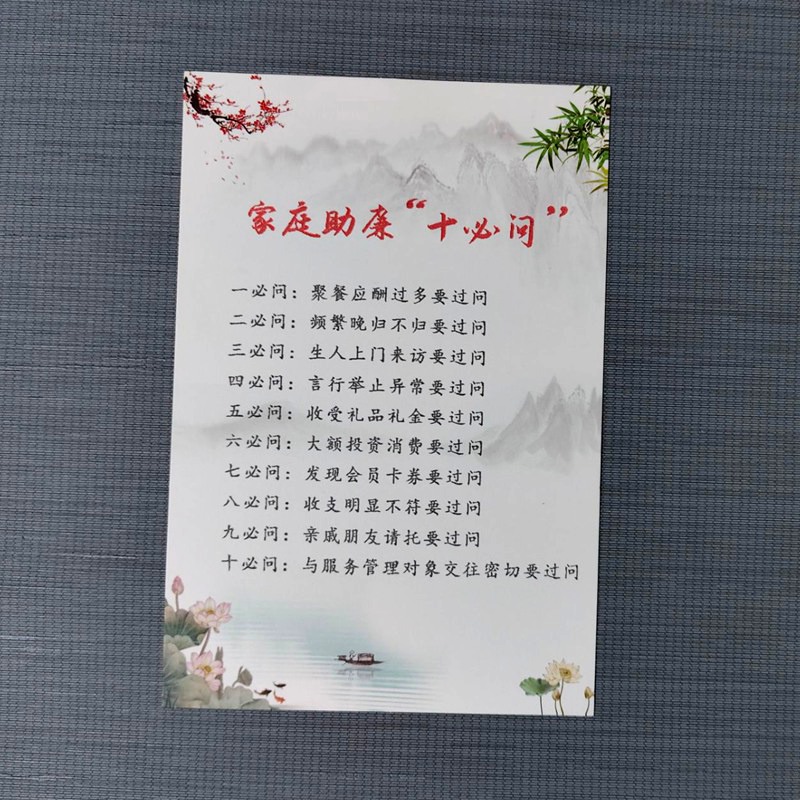 家庭助廉“十必问”
一必问：聚餐应酬过多要过问
二必问：频繁晚归不归要过问
三必问：生人上门来访要过问
四必问：言行举止异常要过问
五必问：收受礼品礼金要过问
六必问：大额投资消费要过问
七必问：发现会员卡券要过问
八必问：收支明显不符要过问
九必问：亲戚朋友请托要过问
十必问：与服务管理对象交往密切要过问